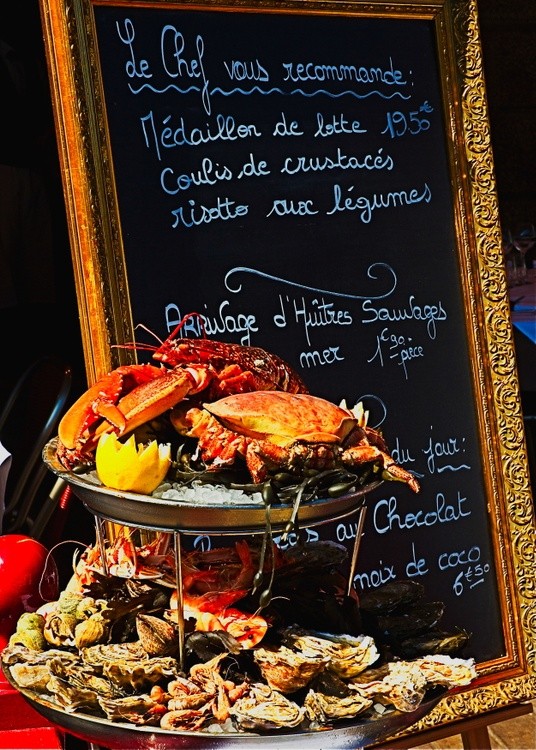 Le Chef vous recommande:
Médaillon de lotte 19.50€
Coulis de crustacés
risotto aux légumes
Arrivage d'Huîtres Sauvages
mer 1€90 pièce
du jour:
au Chocolat
noix de coco
6€50